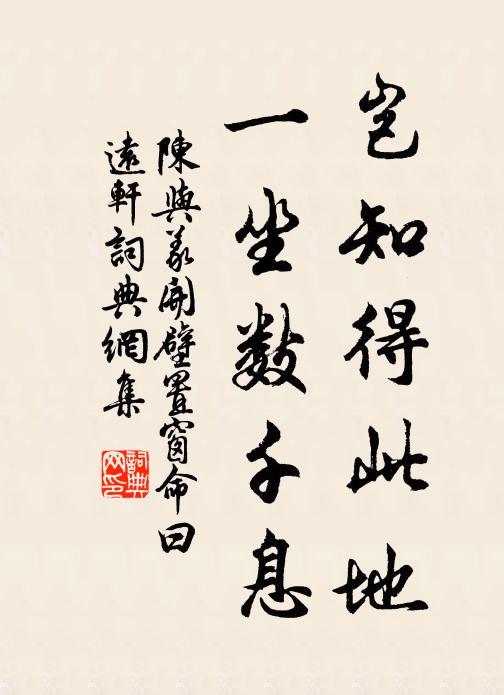 岂知得此地
一坐数千息
陳與義開壁置窗命曰
遠軒詞典網集
詞典
网印